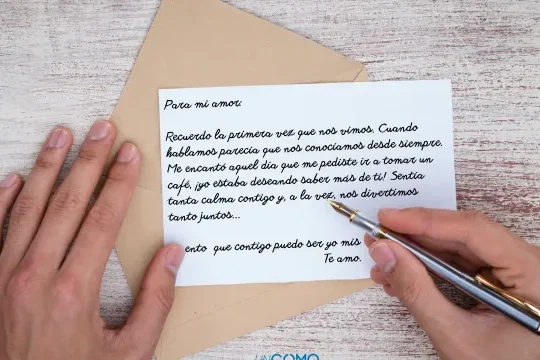 Para mi amor:
Recuerdo la primera vez que nos vimos. Cuando
hablamos parecía que nos conocíamos desde siempre.
Me encantó aquel día que me pediste ir a tomar un
café, ¡yo estaba deseando saber más de ti! Sentía
tanta calma contigo y, a la vez, nos divertimos
tanto juntos...
ento que contigo puedo ser yo mis
Te amo.
UNCOMO